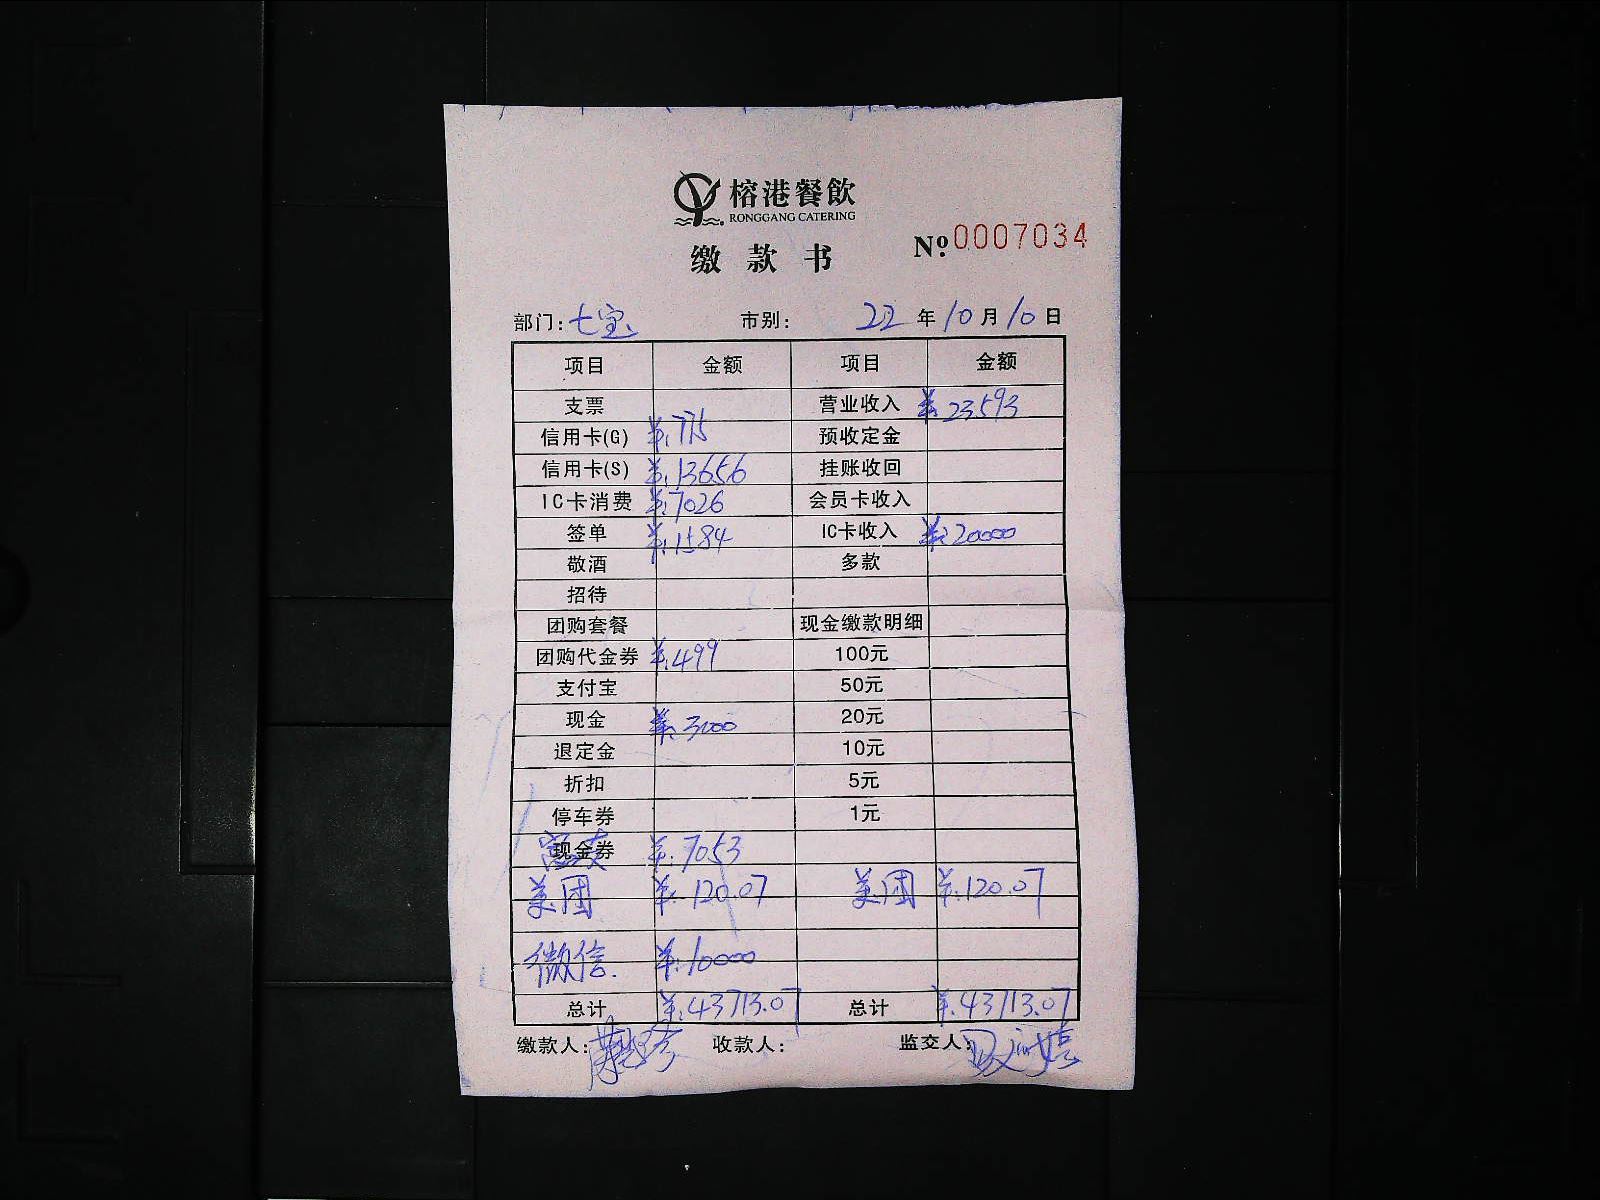 榕港餐飲
RONGGANG CATERING
缴款书 № 0007034
部门: 七宝 市别: 22年10月10日
项目 金额 项目 金额
支票 营业收入 ¥:23593
信用卡(G) ¥:775 预收定金
信用卡(S) ¥:13656 挂账收回
IC卡消费 ¥:7026 会员卡收入
签单 ¥:1584 IC卡收入 ¥:20000
敬酒 多款
招待
团购套餐 现金缴款明细
团购代金券 ¥:499 100元
支付宝 50元
现金 ¥:3000 20元
退定金 10元
折扣 5元
停车券 1元
现金券 ¥:7053
美团 ¥:120.07 美团 ¥:120.07
微信. ¥:10000
总计 ¥:43713.07 总计 ¥:43713.07
缴款人: 收款人: 监交人: